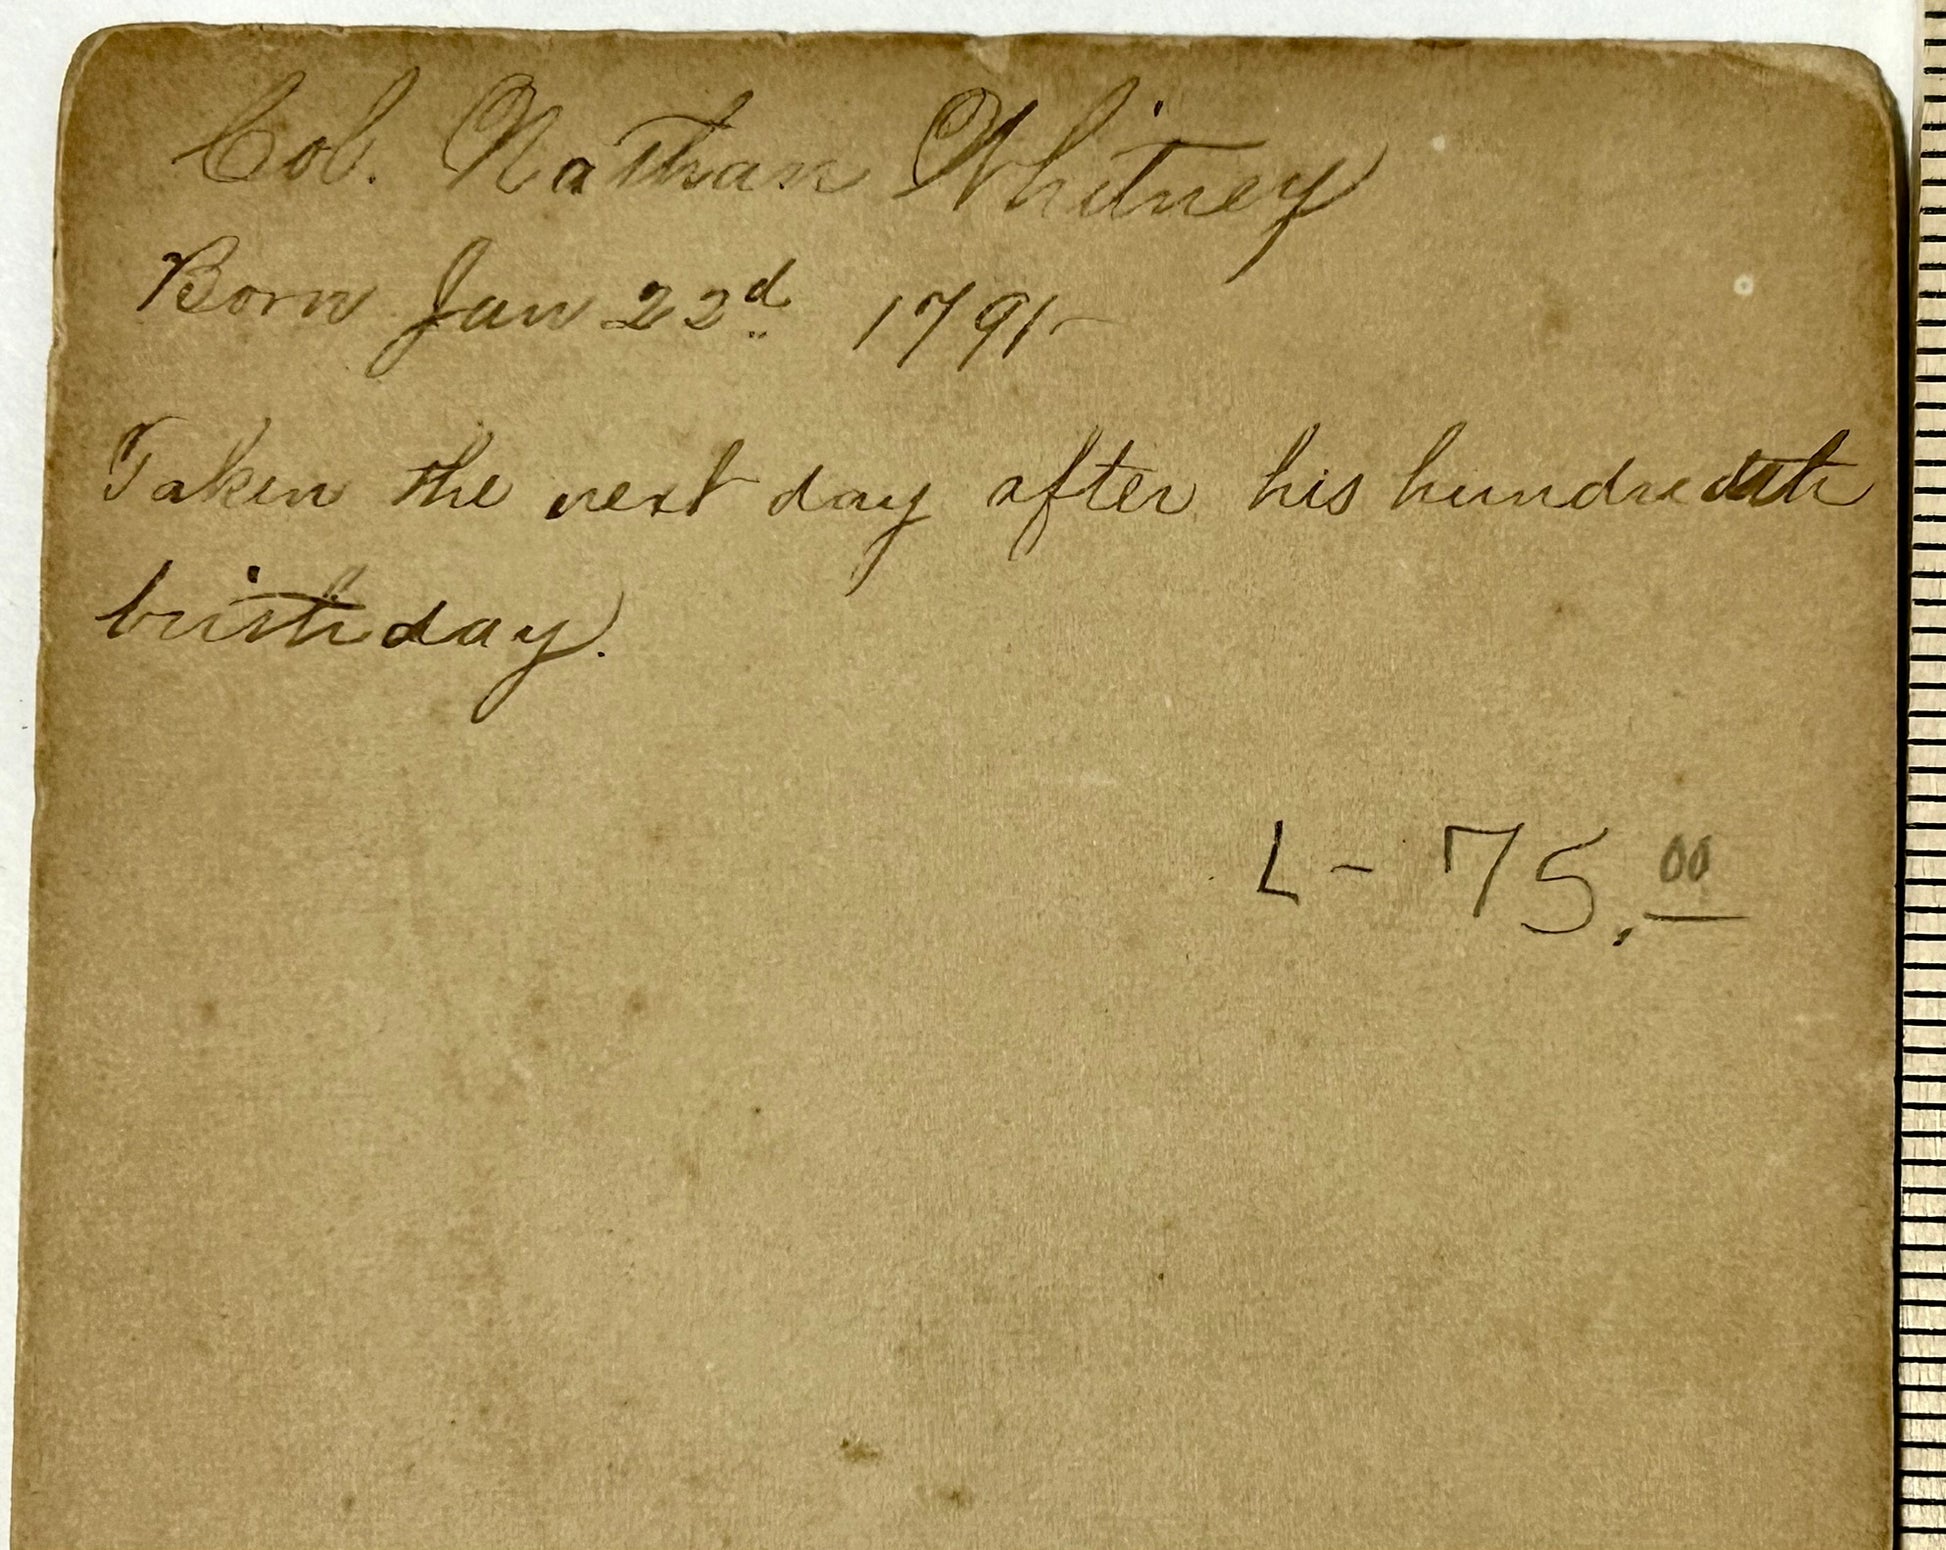 Col. Nathan Whitney
Born Jan 22d 1791-
Taken the next day after his hundredth
birthday.
L - 75.00